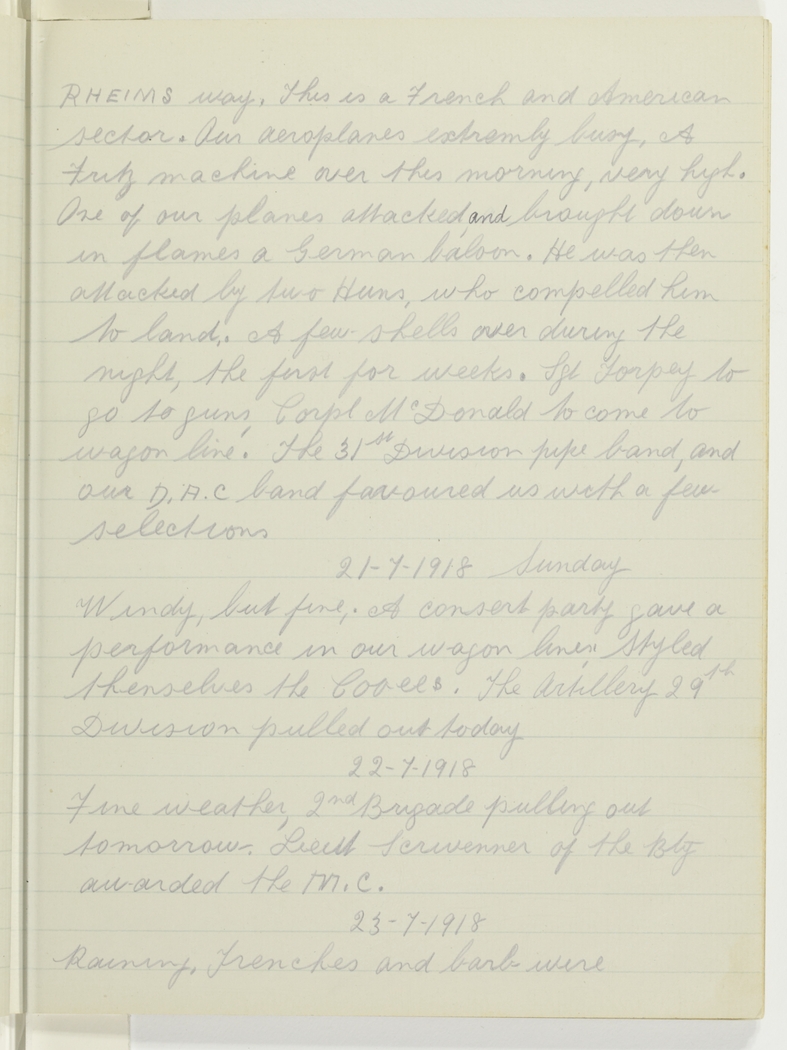 RHEIMS way. This is a French and American
sector. Our aeroplanes extremly busy, A
Fritz machine over this morning, very high.
One of our planes attacked, and brought down
in flames a German baloon. He was then
attacked by two Huns, who compelled him
to land,. A few shells over during the
night, the first for weeks. Sgt Torpey to
go to guns, Corpl McDonald to come to
wagon line. The 31st Division pipe band, and
our D.A.C band favoured us with a few
selections
21-7-1918 Sunday
Windy, but fine,. A consert party gave a
performance in our wagon lines, styled
themselves the Coo-ees. The Artillery 29th
Division pulled out today
22-7-1918
Fine weather, 2nd Brigade pulling out
tomorrow. Lieut Scrivenner of the Bty
awarded the M.C.
23-7-1918
Raining, Trenches and barb wire